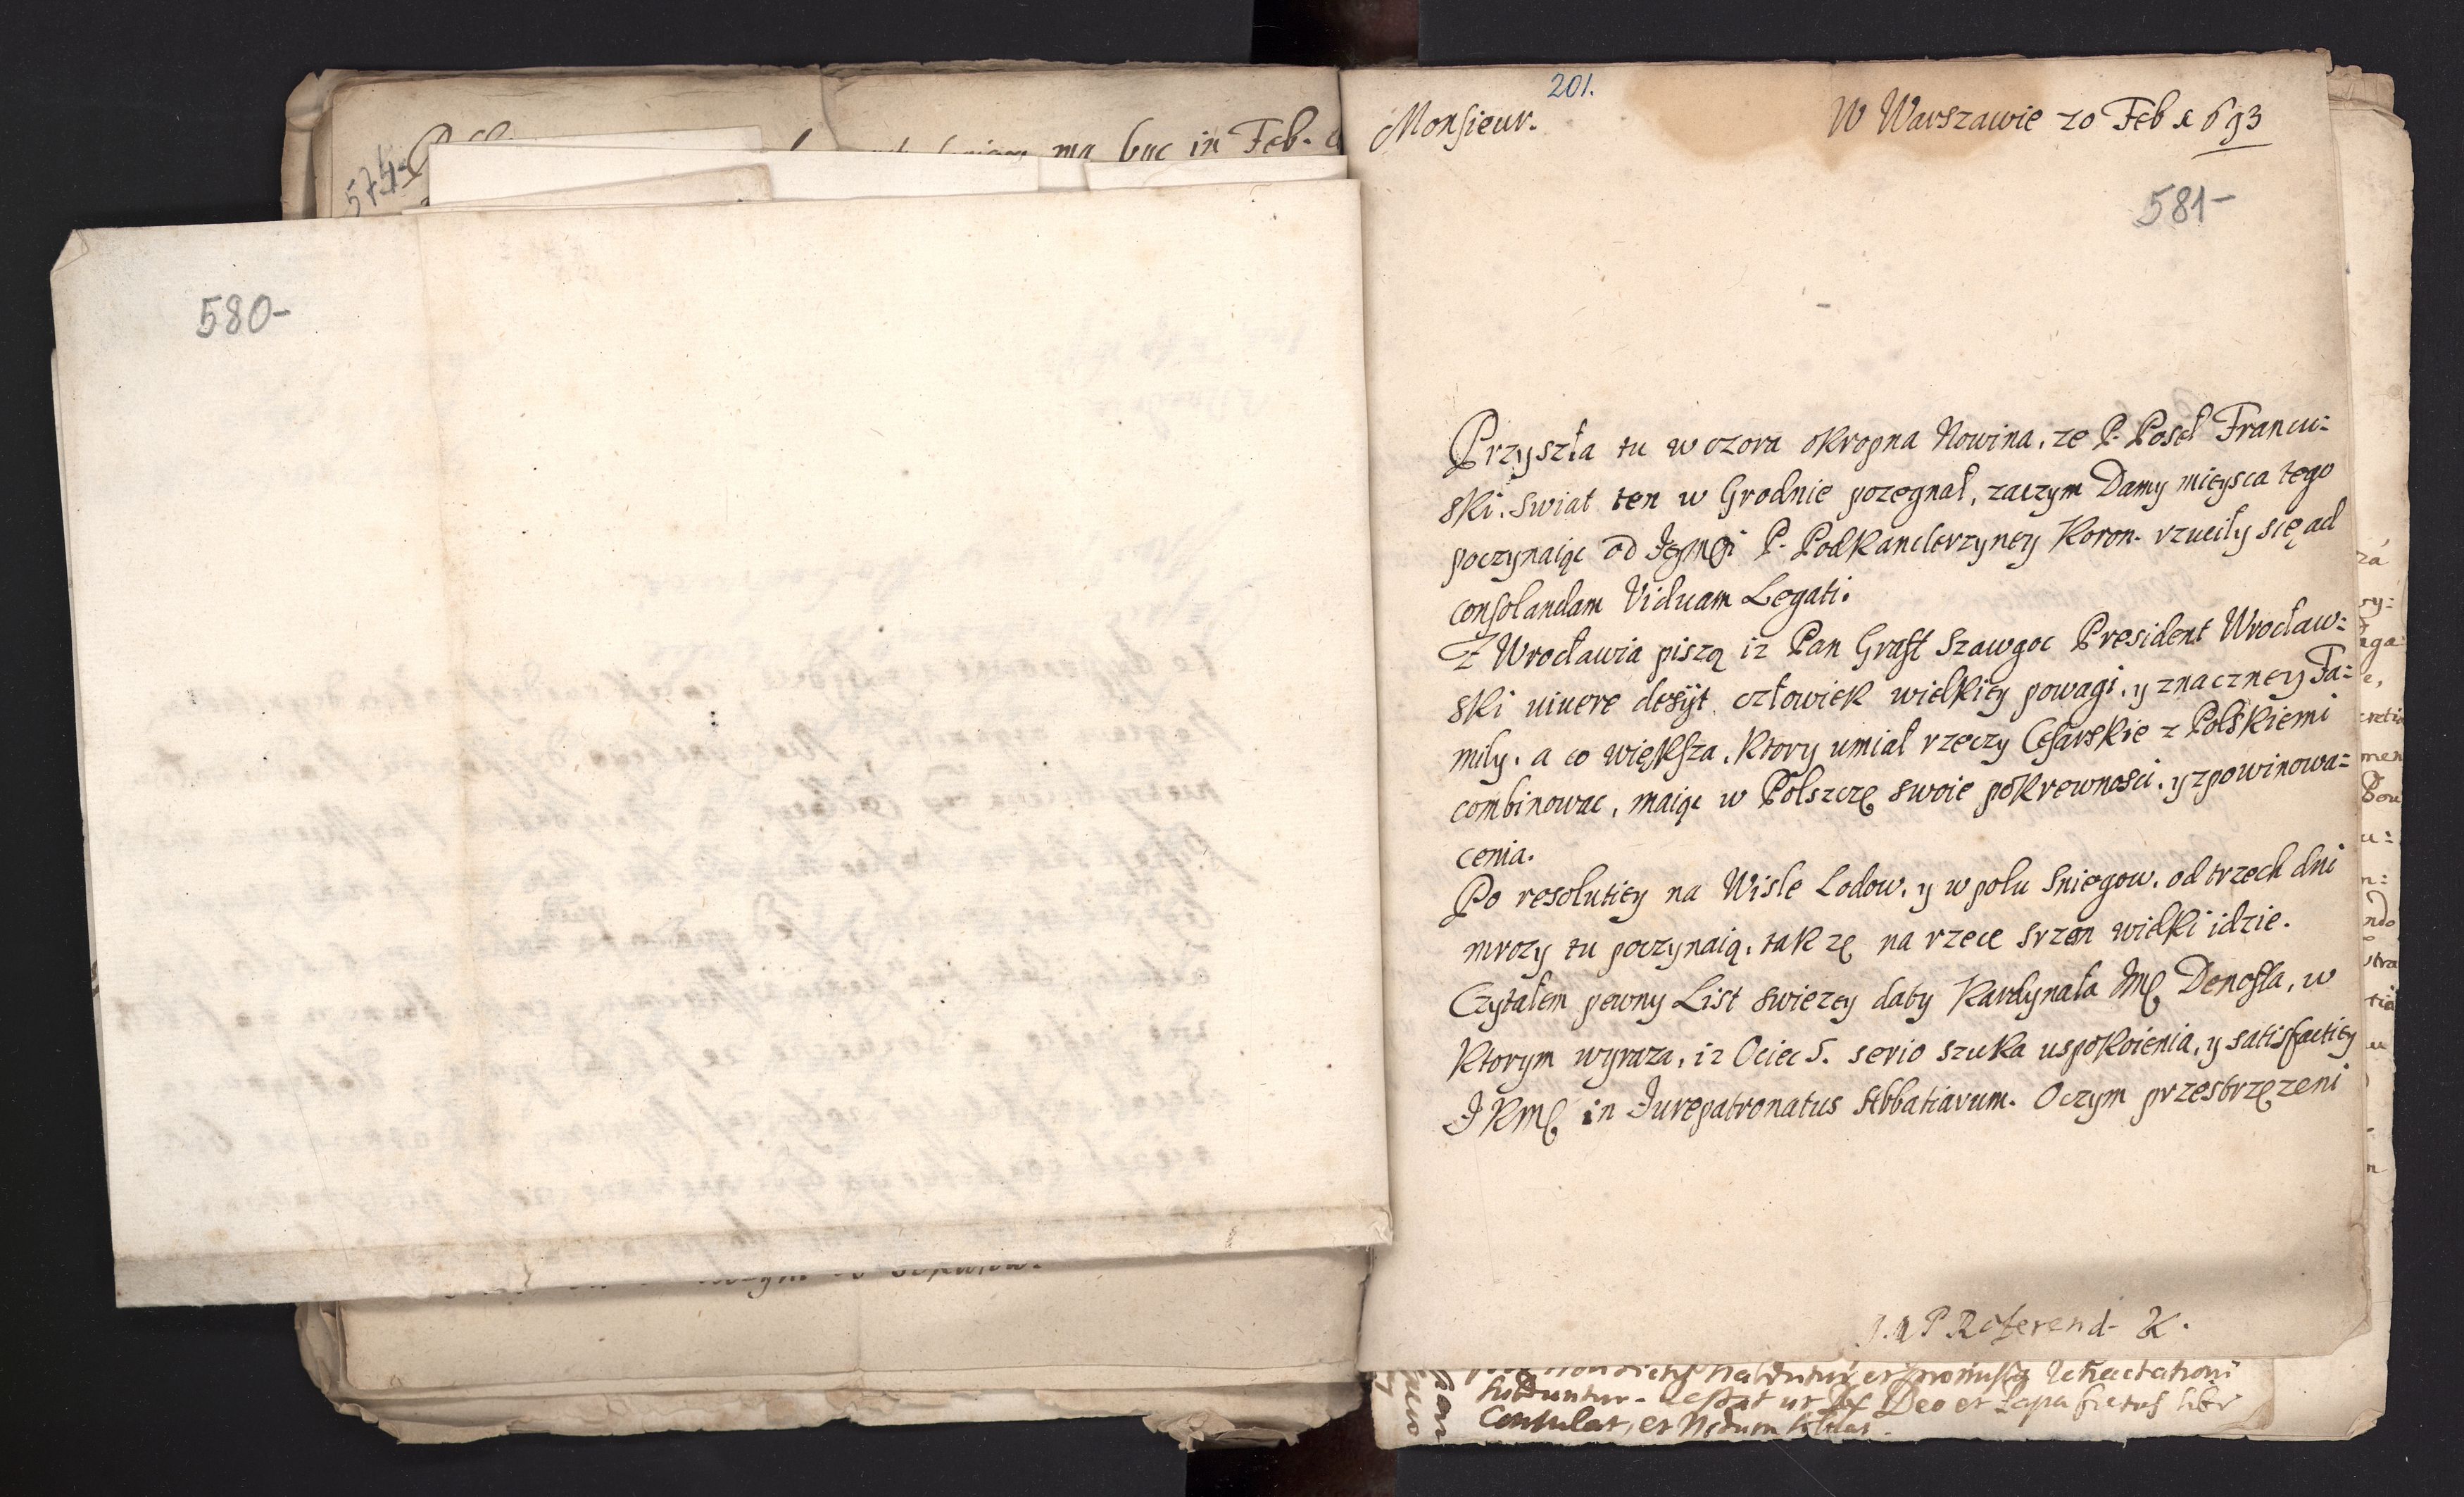 574-
ma buc in Feb.
580-
201.
Monsieur.
W Warszawie 20 Feb 1693
581-
Przyszła tu wczora okropna Nowina, ze P. Poseł Francu=
ski. Swiat ten w Grodnie pozegnał, zaczym Damy mieysca tego
poczynaiąc od P. Podkanclerzyney Koron. rzuciły się ad
consolandam Viduam Legati.
Z Wrocławia piszą iz Pan Graff Szawgoc President Wrocław=
ski vivere desijt człowiek wielkiey powagi, y znaczney Fa=
mily. a co większa. Ktory umiał rzeczy Cesarskie z Polskiemi
combinowac, maiąc w Polszczę swoie pokrewnosci. y zpowinowa=
cenia.
Po resolutiey na Wisle Lodow. y w polu sniegow. od trzech dni
mrozy tu poczynaią. tak zę na rzece srzon wielki idzie.
Czytałem pewny List swiezey daty Kardynała Jmę Denoffa, w
Ktorym wyraza, iz Ociec S. serio szuka uspokoienia, y satisfactiey
J Kmę in Jurepatronatus Abbatiarum. Oczym przestrzęzeni
P Referend. K.
Deo et
Consulat, et